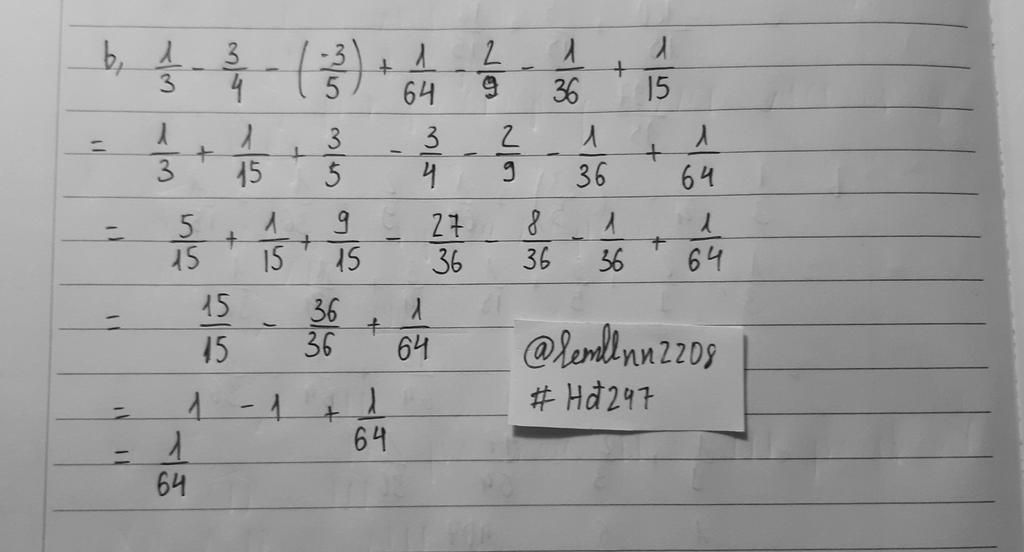 b, 1/3 - 3/4 - (-3/5) + 1/64 - 2/9 - 1/36 + 1/15
= 1/3 + 1/15 + 3/5 - 3/4 - 2/9 - 1/36 + 1/64
= 5/15 + 1/15 + 9/15 - 27/36 - 8/36 - 1/36 + 1/64
= 15/15 - 36/36 + 1/64
= 1 - 1 + 1/64
= 1/64
# Hđ247